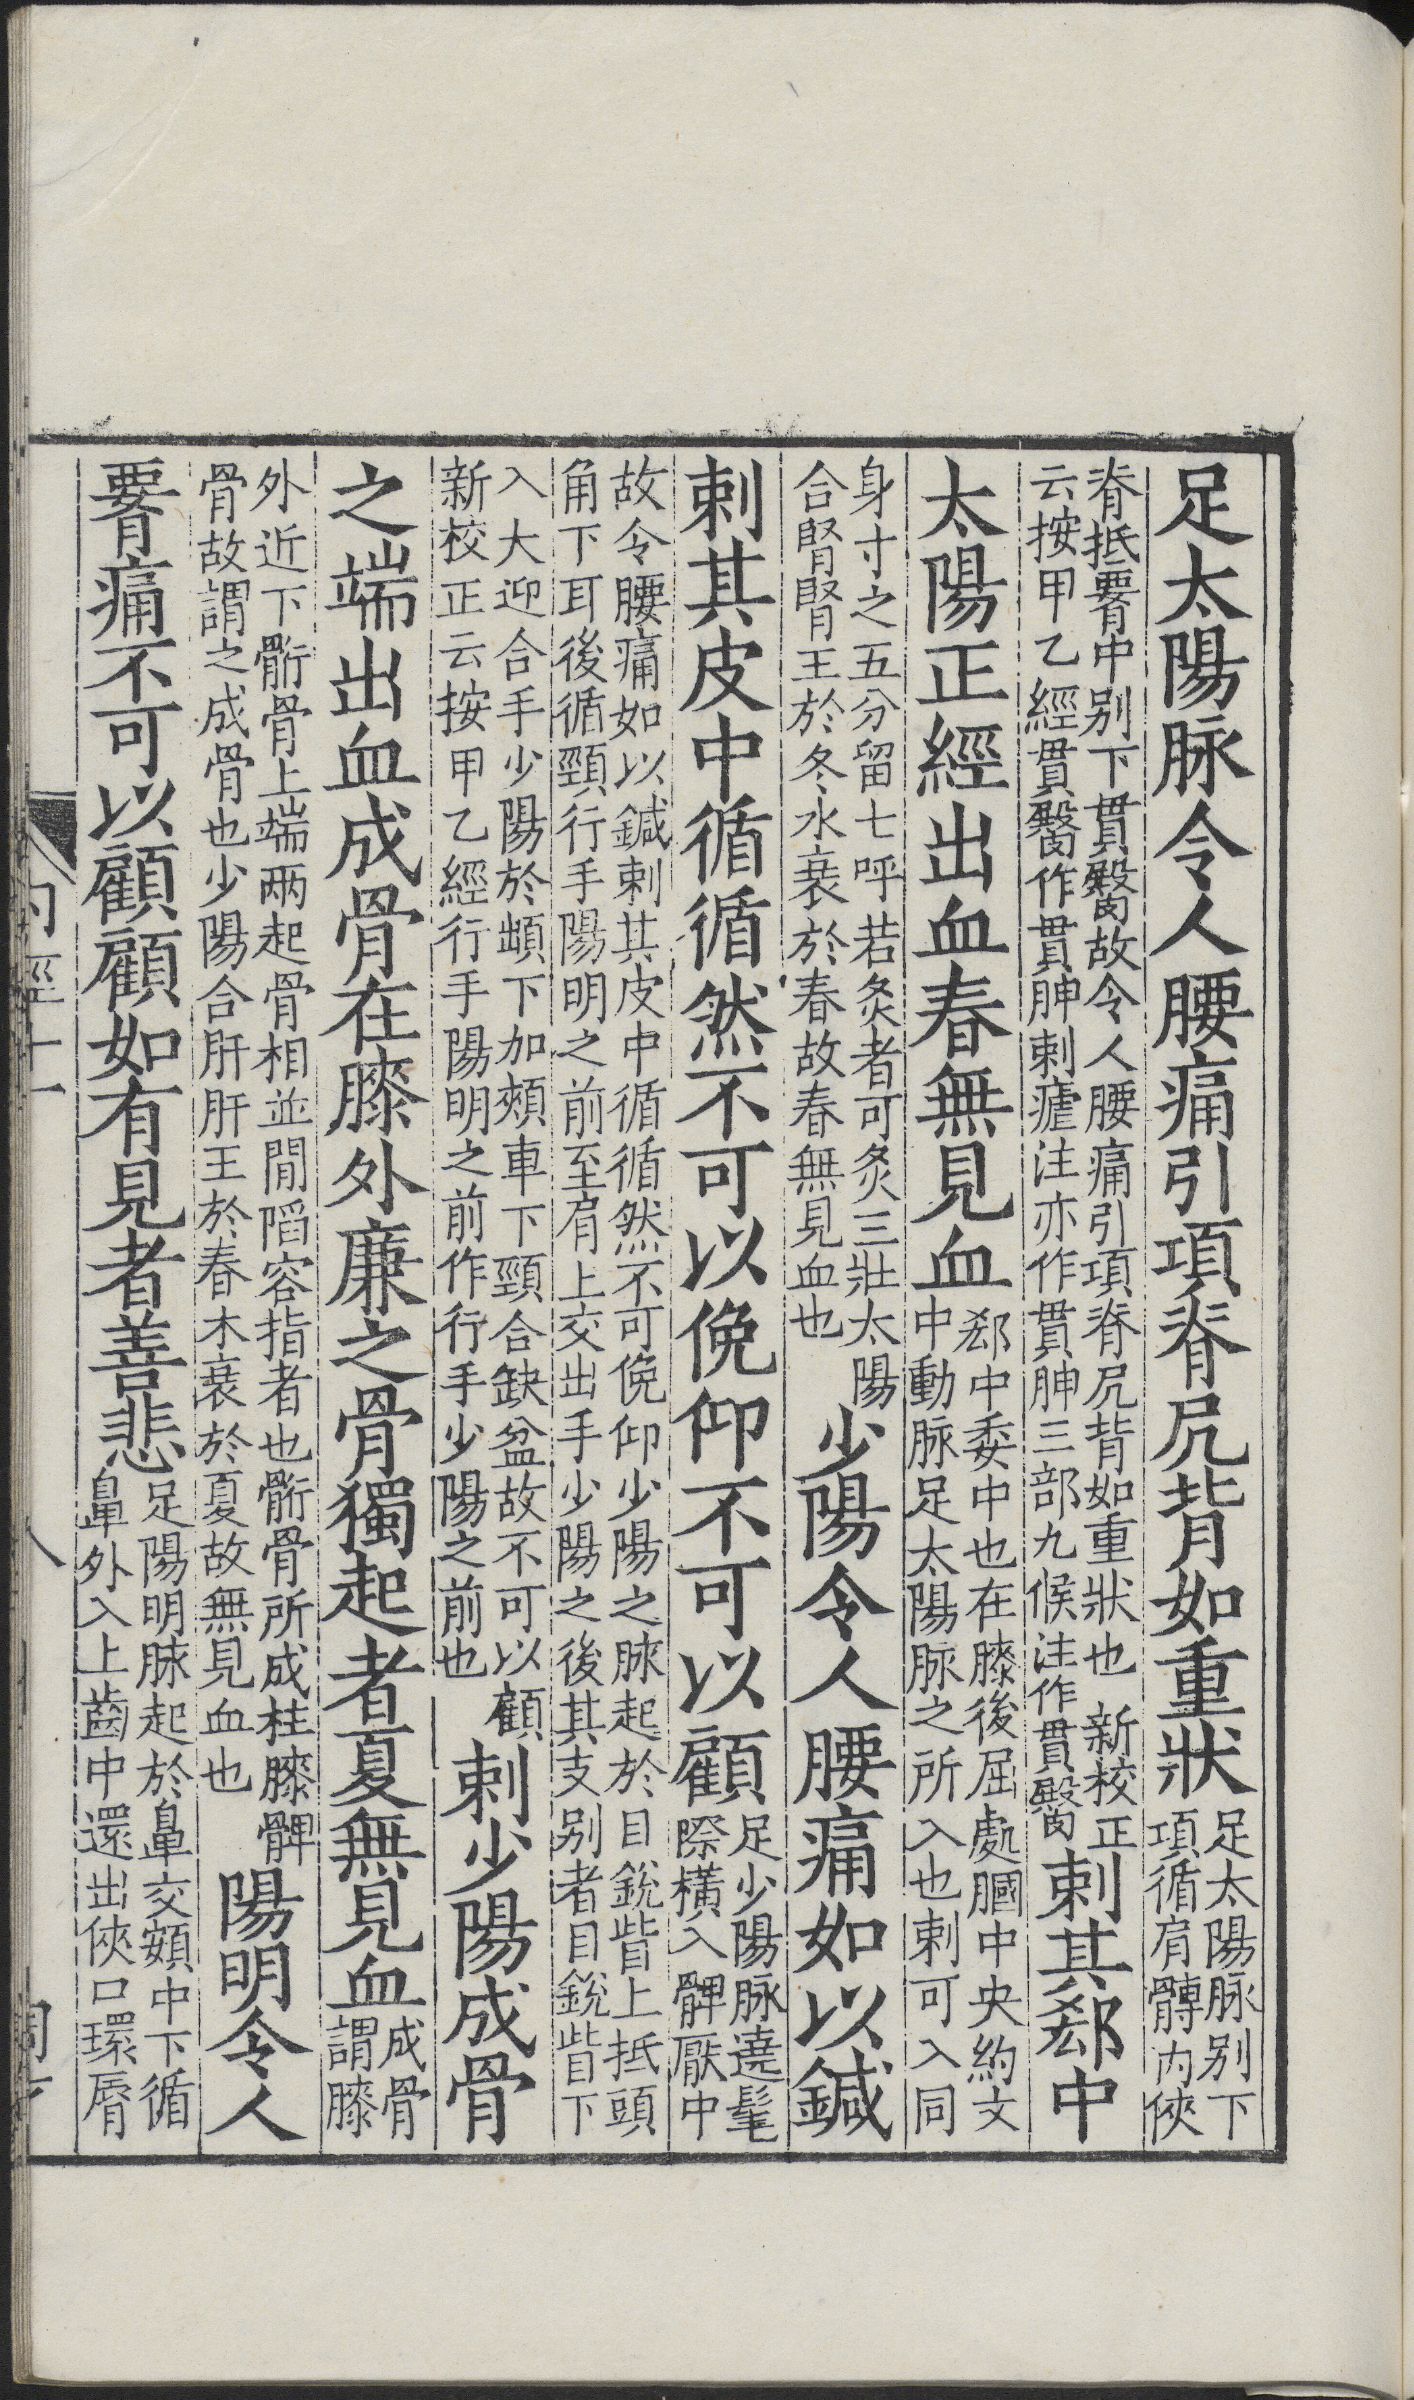 足太陽脉令人腰痛引項脊尻背如重狀足太陽脉別下項循肩髆内俠
脊抵𦝫中別下貫臋故令人腰痛引項脊尻背如重狀也 新校正云按甲乙經貫臋作貫胂刺瘧注亦作貫胂三部九候注作貫臋刺其郄中
太陽正經出血春無見血郄中委中也在膝後屈處膕中央約文中動脉足太陽脉之所入也刺可入同
身寸之五分留七呼若灸者可灸三壯太陽合腎腎王於冬水衰於春故春無見血也少陽令人腰痛如以鍼
刺其皮中循循然不可以俛仰不可以顧足少陽脉遶髦際橫入髀厭中
故令腰痛如以鍼刺其皮中循循然不可俛仰少陽之脉起於目銳眥上抵頭角下耳後循頸行手陽明之前至肩上交出手少陽之後其支別者目銳眥下
入大迎合手少陽於䪼下加頰車下頸合缺盆故不可以顧 新校正云按甲乙經行手陽明之前作行手少陽之前也刺少陽成骨
之端出血成骨在膝外廉之骨獨起者夏無見血成骨謂膝
外近下䯒骨上端兩起骨相並間陷容指者也䯒骨所成柱膝髀骨故謂之成骨也少陽合肝肝王於春木衰於夏故無見血也陽明令人
𦝫痛不可以顧顧如有見者善悲足陽明脉起於鼻交頞中下循鼻外入上齒中還出俠口環脣
内經十一
八